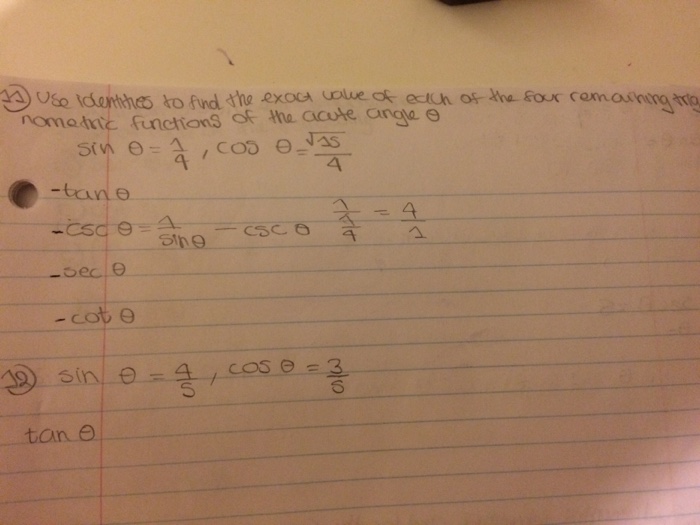 11) Use identities to find the exact value of each of the four remaining trig
nometric functions of the acute angle θ
sin θ = 1/4 , cos θ = √15/4
-tan θ
-csc θ = 1/sin θ - csc θ 1/(1/4) = 4/1
-sec θ
-cot θ
12) sin θ = 4/5 , cos θ = 3/5
tan θ